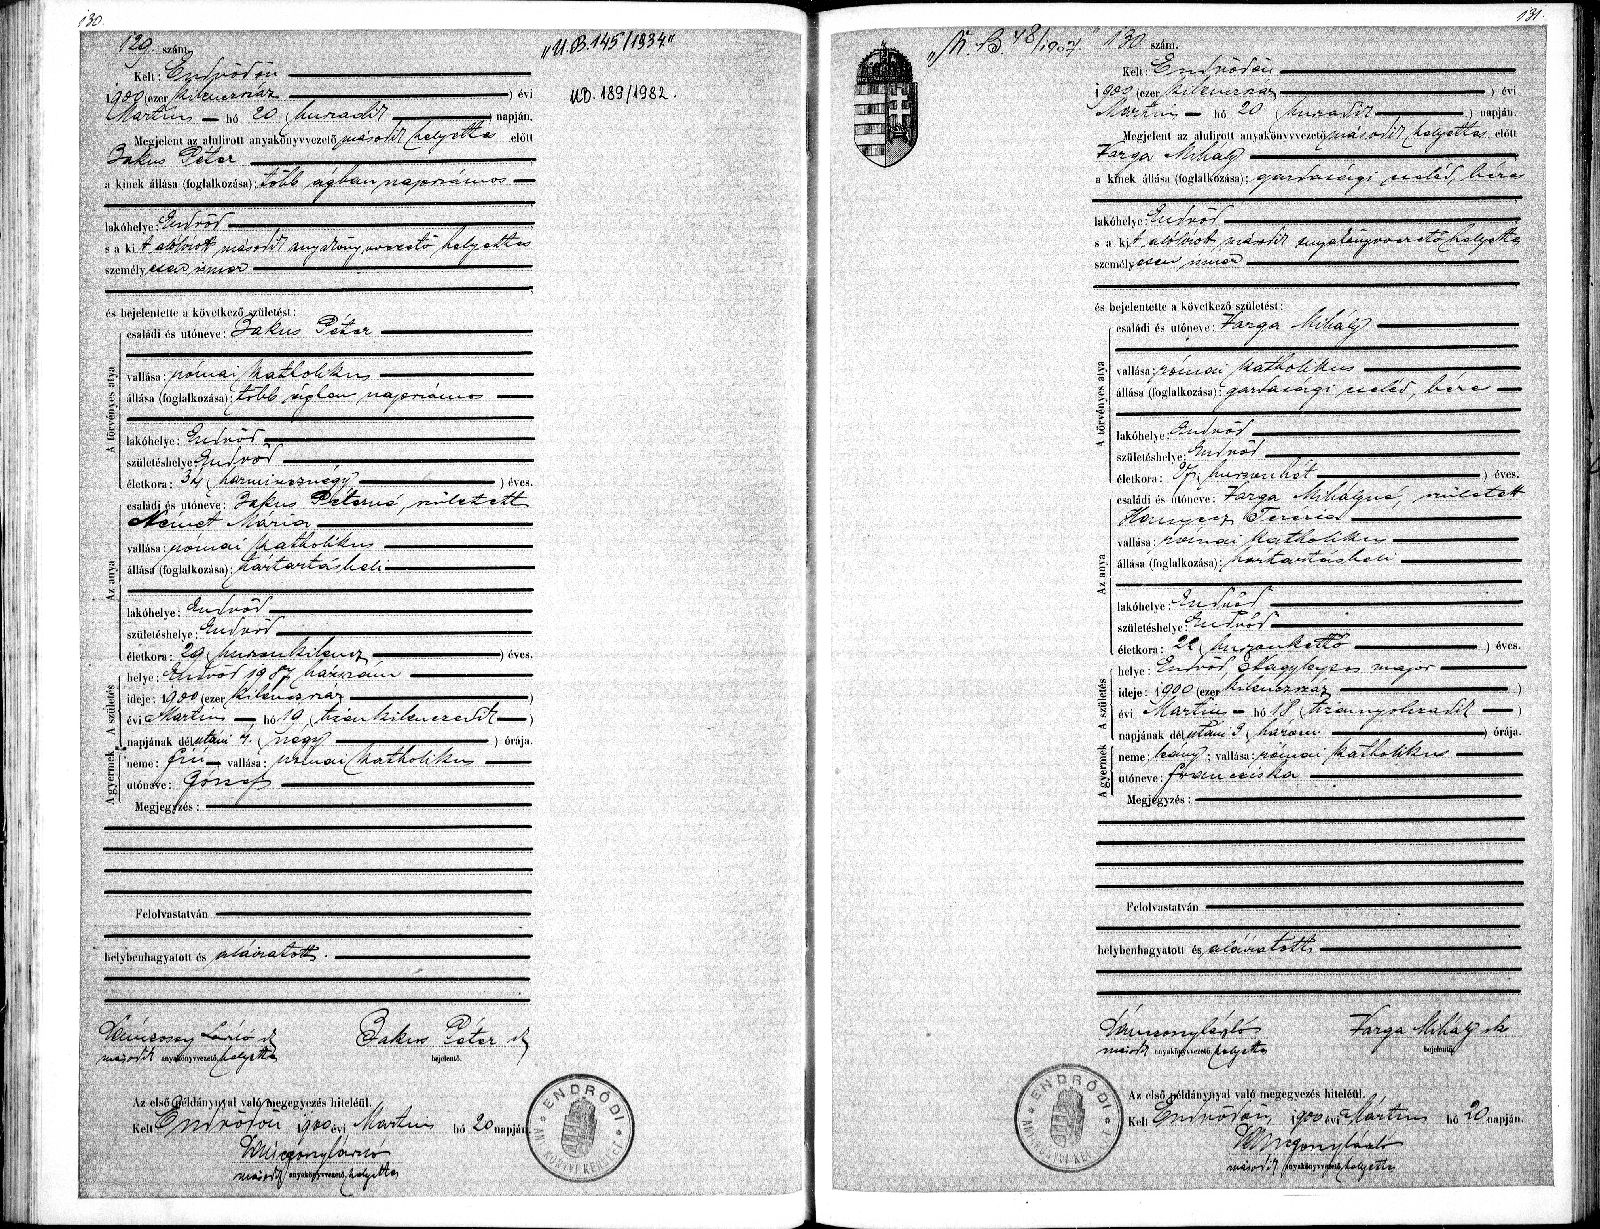 130.
129. szám.
„U.B.145/1934"
UD. 189/1982.
Kelt: Endrődön
1900 (ezer kilenczszáz ) évi
Martius hó 20 (huszadik ) napján.
Megjelent az alulirott anyakönyvvezető második helyettes előtt
Bakus Péter
a kinek állása (foglalkozása): több ágban napszámos
lakóhelye: Endrőd
s a kit alólirott második anyakönyvvezető helyettes
személyesen ismer
és bejelentette a következő születést:
A törvényes atya
családi és utóneve: Bakus Péter
vallása: római katholikus
állása (foglalkozása): több ágban napszámos
lakóhelye: Endrőd
születéshelye: Endrőd
életkora: 34 (harmincznégy ) éves.
Az anya
családi és utóneve: Bakus Péterné, született
Német Mária
vallása: római katholikus
állása (foglalkozása): háztartásbeli
lakóhelye: Endrőd
születéshelye: Endrőd
életkora: 29 (huszonkilencz ) éves.
A születés
helye: Endrőd 1987 házszám
ideje: 1900 (ezer kilenczszáz )
évi Martius hó 19 (tizenkilenczedik )
napjának délutáni 4. (négy ) órája.
A gyermek
neme: fiú vallása: római katholikus
utóneve: József
Megjegyzés:
Felolvastatván
helybenhagyatott és aláiratott.
Bakus Péter
második anyakönyvvezető helyettes
bejelentő.
Az első példánynyal való megegyezés hiteléül.
Kelt Endrődön 1900 évi Martius hó 20 napján.
második anyakönyvvezető helyettes
ENDRŐDI
131.
130. szám.
Kelt: Endrődön
1900 (ezer kilenczszáz ) évi
Martius hó 20 (huszadik ) napján.
Megjelent az alulirott anyakönyvvezető második helyettes előtt
Varga Mihály
a kinek állása (foglalkozása): gazdasági cseléd, béres
lakóhelye: Endrőd
s a kit alólirott második anyakönyvvezető helyettes
személyesen ismer
és bejelentette a következő születést:
A törvényes atya
családi és utóneve: Varga Mihály
vallása: római katholikus
állása (foglalkozása): gazdasági cseléd, béres
lakóhelye: Endrőd
születéshelye: Endrőd
életkora: 27 (huszonhét ) éves.
Az anya
családi és utóneve: Varga Mihályné, született
Hanyecz Terézia
vallása: római katholikus
állása (foglalkozása): háztartásbeli
lakóhelye: Endrőd
születéshelye: Endrőd
életkora: 22 (huszonkettő ) éves.
A születés
helye: Endrőd, major
ideje: 1900 (ezer kilenczszáz )
évi Martius hó 18 (tizennyolczadik )
napjának délutáni 3 (három ) órája.
A gyermek
neme: leány; vallása: római katholikus
utóneve: Francziska
Megjegyzés:
Felolvastatván
helybenhagyatott és aláiratott
Varga Mihály sk
második anyakönyvvezető helyettes
bejelentő.
Az első példánynyal való megegyezés hiteléül.
Kelt Endrődön, 1900 évi Mártius hó 20 napján.
második anyakönyvvezető helyettes
ENDRŐDI